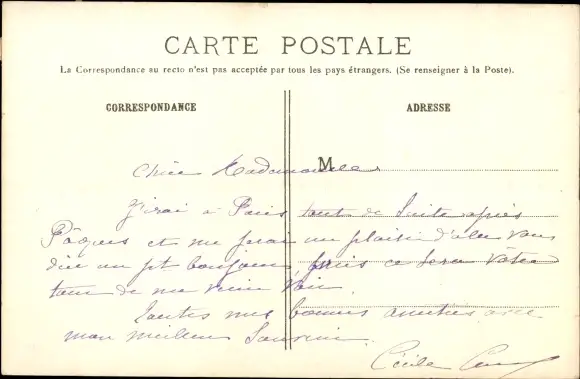 CARTE POSTALE
La Correspondance au recto n'est pas acceptée par tous les pays étrangers. (Se renseigner à la Poste).
CORRESPONDANCE ADRESSE
M
Chère Mademoiselle
J'irai à Paris tout de suite après
Pâques et me ferai un plaisir d'aller vous
dire un pt bonjour, puis ce sera votre
tour de me venir voir.
Toutes mes bonnes amitiés avec
mon meilleur souvenir.
Cécile